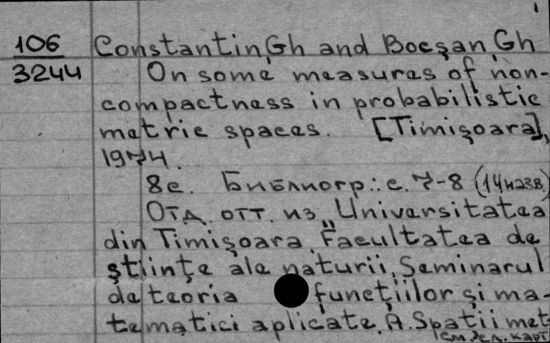 106
3244
Constantin, Gh and Bocşan, Gh
On some measures of non-
compactness in probabilistic
metric spaces. [Timişoara],
1974.
8 c. Библиогр.: с. 7-8 (14 назв)
Отд. отт. из „Universitatea
din Timişoara. Facultatea de
ştiinţe ale naturii. Seminarul
de teoria funcţiilor şi ma-
tematici aplicate. A. Spatii met
см. сл. карт